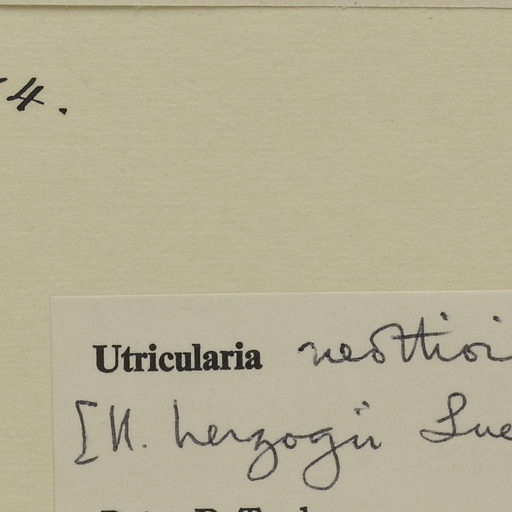 4.
Utricularia neottioi
[U. herzogii Lue